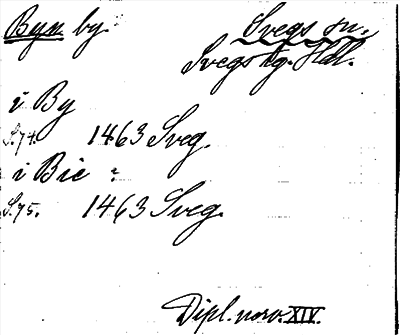 Byn by. Svegs sn.
Svegs tg. Hdl.
i By
S.74. 1463 Sveg.
i Bie :
S.75. 1463 Sveg.
Dipl. norv. XIV.